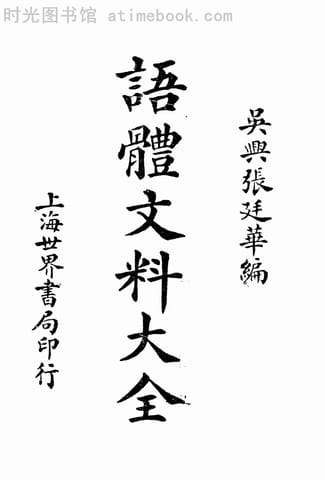 时光图书馆 atimebook.com
吳興張廷華編
語體文料大全
上海世界書局印行